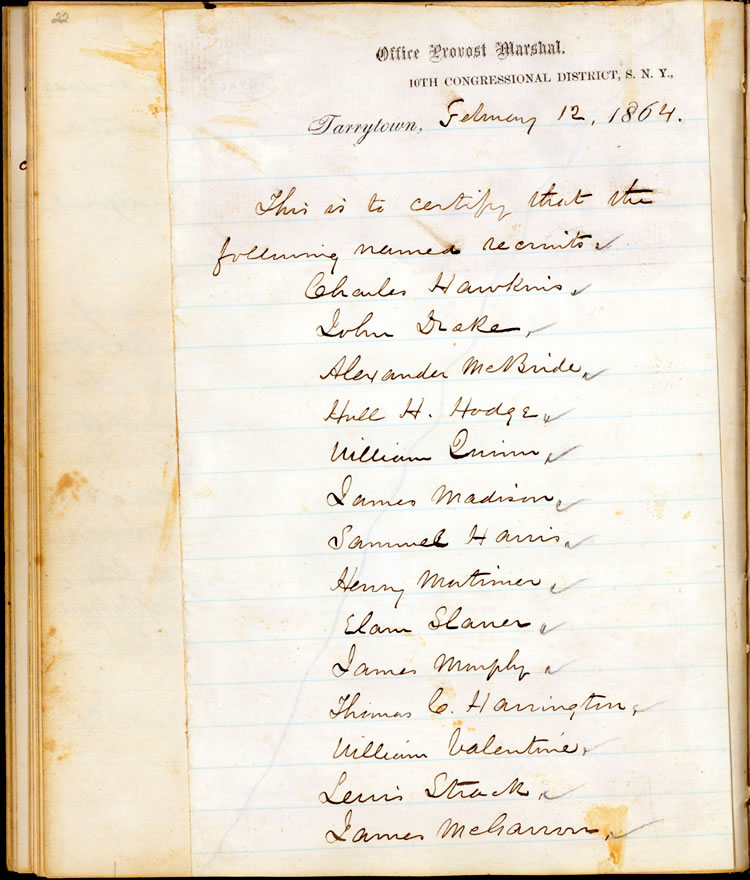 22
Office Provost Marshal.
10TH CONGRESSIONAL DISTRICT, S. N. Y.,
Tarrytown, February 12, 1864.
This is to certify that the
following named recruits
Charles Hawkins,
John Drake,
Alexander McBride,
Hull H. Hodge,
William Quinn,
James Madison,
Samuel Harris,
Henry Mortimer,
Elam
James Murphy,
Thomas C. Harrington,
William Valentine,
Lewis Strack,
James McGarron,